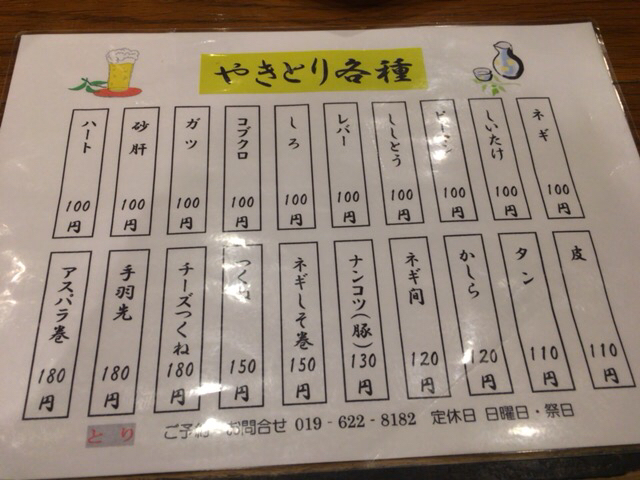 やきとり各種
ネギ 100円
しいたけ 100円
ピーマン 100円
ししとう 100円
レバー 100円
しろ 100円
コブクロ 100円
ガツ 100円
砂肝 100円
ハート 100円
皮 110円
タン 110円
かしら 120円
ネギ間 120円
ナンコツ(豚) 130円
ネギしそ巻 150円
つくね 150円
チーズつくね 180円
手羽先 180円
アスパラ巻 180円
とり ご予約・お問合せ 019-622-8182 定休日 日曜日・祭日